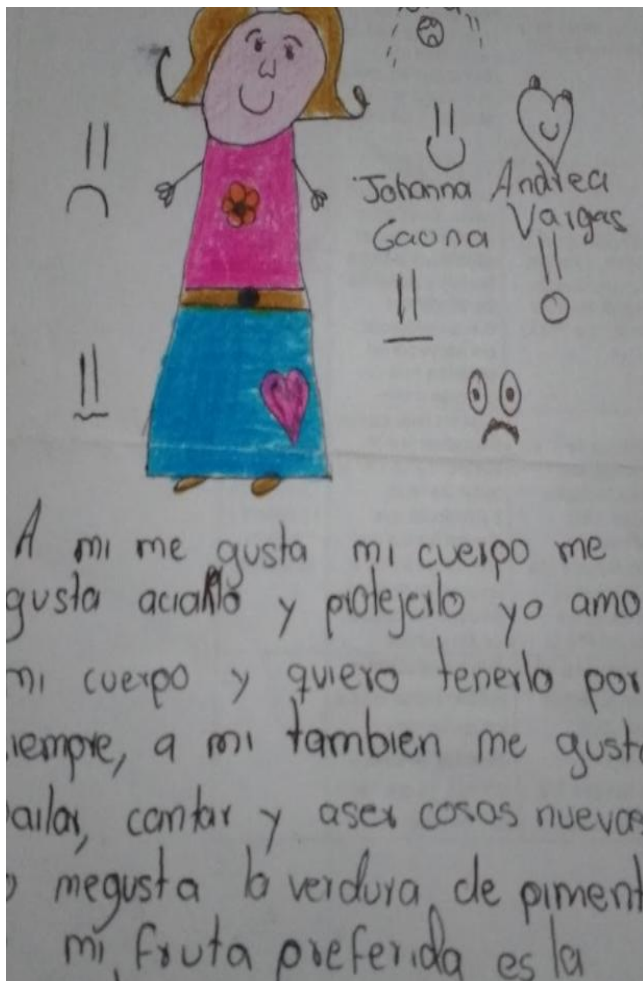 Johanna Andrea
Gaona Vargas
A mi me gusta mi cuerpo me
gusta aciarlo y protejerlo yo amo
mi cuerpo y quiero tenerlo por
iempre, a mi tambien me gusta
ailar, cantar y aser cosas nuevas
o megusta la verdura de piment
mi fruta preferida es la